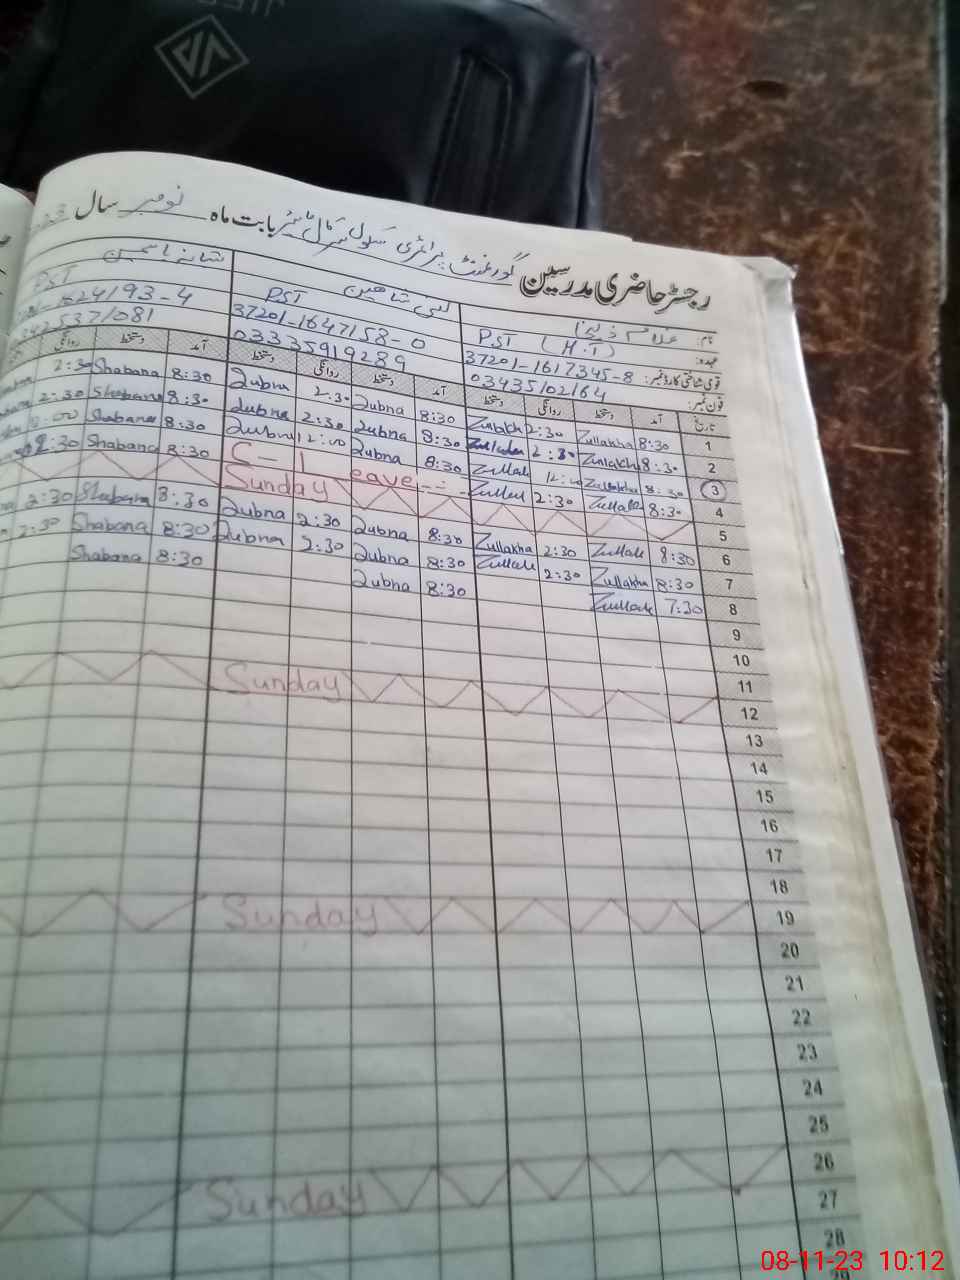 رجسٹر حاضری مدرسین گورنمنٹ پرائمری سکول بابت ماہ نومبر سال
نام:
عہدہ: PST (H.T) PST PST
قومی شناختی کارڈ نمبر: 37201-1617345-8 37201-1647158-0 1624193-4
فون نمبر: 03435102164 03335919289 5371081
تاریخ آمد دستخط روانگی دستخط آمد دستخط روانگی دستخط آمد دستخط روانگی
1 8:30 Zullakha 2:30 8:30 Lubna 2:30 Lubna 8:30 Shabana 2:30
2 8:30 2:30 8:30 Lubna 2:30 Lubna 8:30 Shabana 2:30
3 8:30 Zullakha 12:00 8:30 Lubna 12:00 Lubna 8:30 Shabana 12:00
4 8:30 2:30 C-Leave 8:30 Shabana 2:30
5 Sunday
6 8:30 2:30 Zullakha 8:30 Lubna 2:30 Lubna 8:30 Shabana 2:30
7 8:30 Zullakha 2:30 8:30 Lubna 2:30 Lubna 8:30 Shabana 2:30
8 7:30 8:30 Lubna 8:30 Shabana
9
10
11
12 Sunday
13
14
15
16
17
18
19 Sunday
20
21
22
23
24
25
26 Sunday
27
28
29
08-11-23 10:12